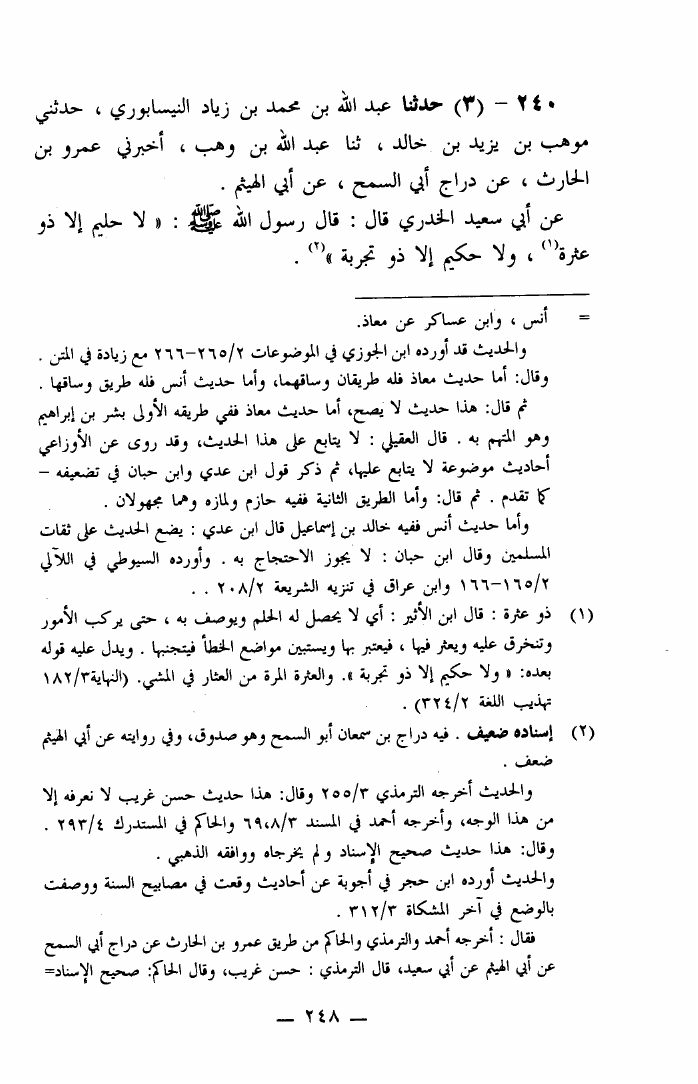 ٢٤٠ – (٣) حدثنا عبد الله بن محمد بن زياد النيسابوري ، حدثني
موهب بن يزيد بن خالد ، ثنا عبد الله بن وهب ، أخبرني عمرو بن
الحارث ، عن دراج أبي السمح ، عن أبي الهيثم .
عن أبي سعيد الخدري قال : قال رسول الله ﷺ : « لا حليم إلا ذو
عثرة(١) ، ولا حكيم إلا ذو تجربة »(٢) .
= أنس ، وابن عساكر عن معاذ.
والحديث قد أورده ابن الجوزي في الموضوعات ٢/٢٦٥–٢٦٦ مع زيادة في المتن .
وقال: أما حديث معاذ فله طريقان وساقهما، وأما حديث أنس فله طريق وساقها .
ثم قال: هذا حديث لا يصح، أما حديث معاذ ففي طريقه الأولى بشر بن إبراهيم
وهو المتهم به . قال العقيلي : لا يتابع على هذا الحديث، وقد روى عن الأوزاعي
أحاديث موضوعة لا يتابع عليها، ثم ذكر قول ابن عدي وابن حبان في تضعيفه –
كما تقدم . ثم قال: وأما الطريق الثانية ففيه حازم ولمازه وهما مجهولان .
وأما حديث أنس ففيه خالد بن إسماعيل قال ابن عدي : يضع الحديث على ثقات
المسلمين وقال ابن حبان : لا يجوز الاحتجاج به . وأورده السيوطي في اللآلي
٢/١٦٥–١٦٦ وابن عراق في تنزيه الشريعة ٢/٢٠٨ . .
(١) ذو عثرة : قال ابن الأثير : أي لا يحصل له الحلم ويوصف به ، حتى يركب الأمور
وتنخرق عليه ويعثر فيها ، فيعتبر بها ويستبين مواضع الخطأ فيتجنبها . ويدل عليه قوله
بعده: « ولا حكيم إلا ذو تجربة ». والعثرة المرة من العثار في المشي. (النهاية٣/١٨٢
تهذيب اللغة ٢/٣٢٤) .
(٢) إسناده ضعيف . فيه دراج بن سمعان أبو السمح وهو صدوق، وفي روايته عن أبي الهيثم
ضعف .
والحديث أخرجه الترمذي ٣/٢٥٥ وقال: هذا حديث حسن غريب لا نعرفه إلا
من هذا الوجه، وأخرجه أحمد في المسند ٣/٦٩،٨ والحاكم في المستدرك ٤/٢٩٣ .
وقال: هذا حديث صحيح الإسناد ولم يخرجاه ووافقه الذهبي .
والحديث أورده ابن حجر في أجوبة عن أحاديث وقعت في مصابيح السنة ووصفت
بالوضع في آخر المشكاة ٣/٣١٢ .
فقال : أخرجه أحمد والترمذي والحاكم من طريق عمرو بن الحارث عن دراج أبي السمح
عن أبي الهيثم عن أبي سعيد، قال الترمذي : حسن غريب، وقال الحاكم: صحيح الإسناد=
— ٢٤٨ —